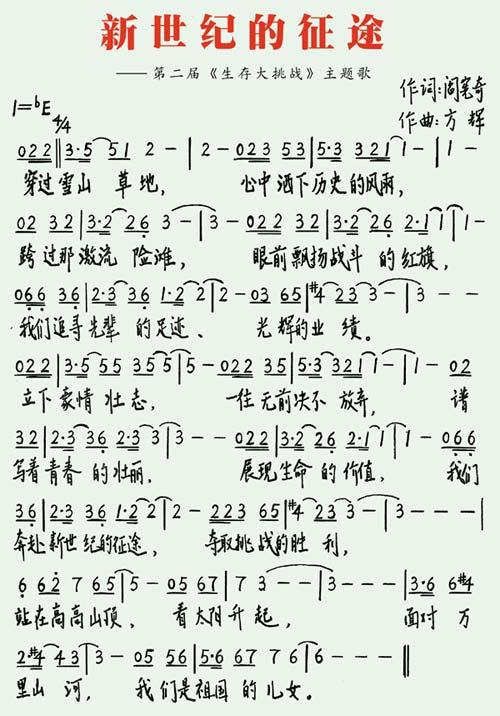 新世纪的征途
——第二届《生存大挑战》主题歌
作词:阎宪奇
1=♭E 4/4
作曲:方辉
022‖3·5 51 2-|-023 53|5·3 3211-|1-
穿过雪山 草地, 心中洒下历史的风雨,
02 32|2·3 26 3-|3-022 36|36 26 2·11-|1-
跨过那激流 险滩, 眼前飘扬战斗 的红旗,
066 36|2·3 36 1·22-|2-03 65|#4 23 3-|3--
我们追寻先辈 的足迹、 光辉的业 绩。
022|3·5 55 35 5|5-022 35|5·3 3211-|1-02
立下豪情壮志, 一往无前决不 放弃, 谱
32|2·3 36 2·33-|3--022 36|36 26 2·11|1-066
写着青春 的壮丽, 展现生命 的价值, 我们
36|2·3 36 1·22-|2-223 65|#4 235 3-|3---|
奔赴新世纪的征途, 夺取挑战的胜 利,
6 62 7 65|5-05 67|7 3--|3---|3·6 6#4
站在高高山顶, 看太阳升起, 面对 万
2#4 43 3-|3-05 56|5·6 67 7-|1---‖
里山 河, 我们是祖国 的儿女。